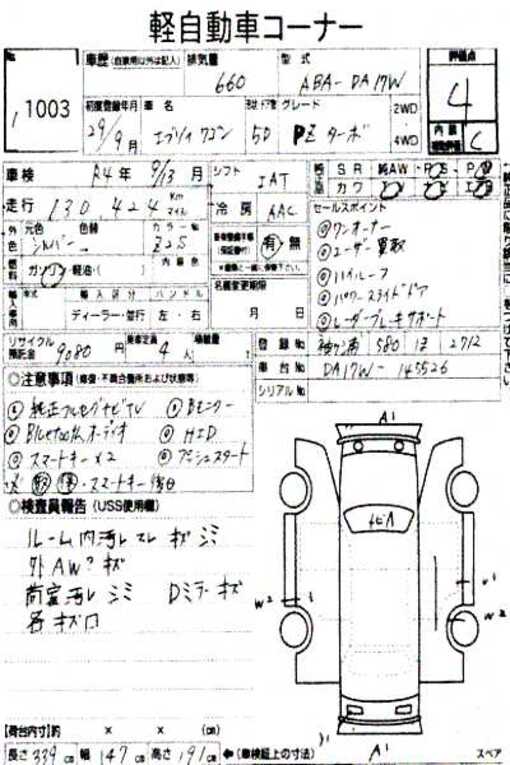 軽自動車コーナー
No. 1003
車歴 (自家用以外は記入) 排気量 660 型式 ABA-DA17W 評価点 4
初度登録年月 29/9月 車名 エブリィワゴン ドア数 5D グレード PZ ターボ 2WD 4WD 内装 C
車検 R4年 9/13月 シフト IAT 純正品 SR 純AW PS PW
カワ
走行 130,424 Km マイル 冷房 AAC セールスポイント
外色 元色 シルバー 色替 カラーNo Z2S 有・無 ◎ワンオーナー
◎ユーザー買取
燃料 ガソリン・軽油・( ) 内装色 ◎ハイルーフ
輸入車用 年式 輸入区分 ハンドル 名義変更期限 ◎パワースライドドア
ディーラー・並行 左・右 月 日 ◎レーダーブレーキサポート
リサイクル預託金 9080円 乗車定員 4人 積載量 登録No 580 2712
車台No DA17W-145526
シリアルNo
◎注意事項 (修復・不具合箇所および状態等)
◎純正フルセグナビTV ◎Bモニター
◎Bluetoothオーディオ ◎HID
◎スマートキー×2 ◎プッシュスタート
取 保 ・スマートキー後日
◎検査員報告 (USS使用欄)
ルーム内汚レ スレ キズ シミ
外AW キズ
荷室汚レ シミ Dミラーキズ
各キズ凹
A1
ナビA
W2
W2
A1
[荷台内寸]約 × × (cm)
長さ 339 cm 幅 147 cm 高さ 191 cm ←(車検証上の寸法) スペア